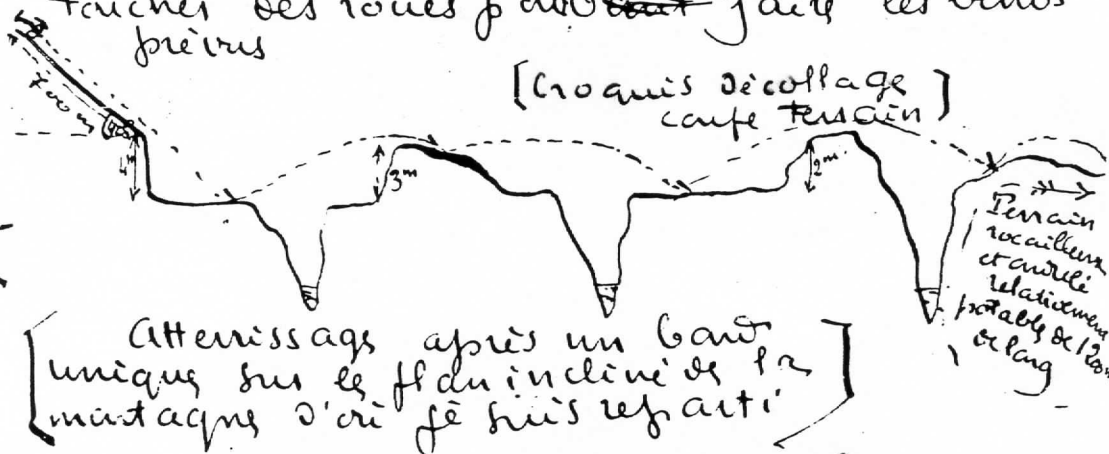 toucher des roues pouvant faire les bonds
prévus
[Croquis décollage
coupe terrain]
700m
4m
3m
2m.
Terrain
rocailleux
et ondulé
relativement
potable de
de long
[Atterrissage après un bond
unique sur le flanc incliné de la
montagne d'où je suis reparti]